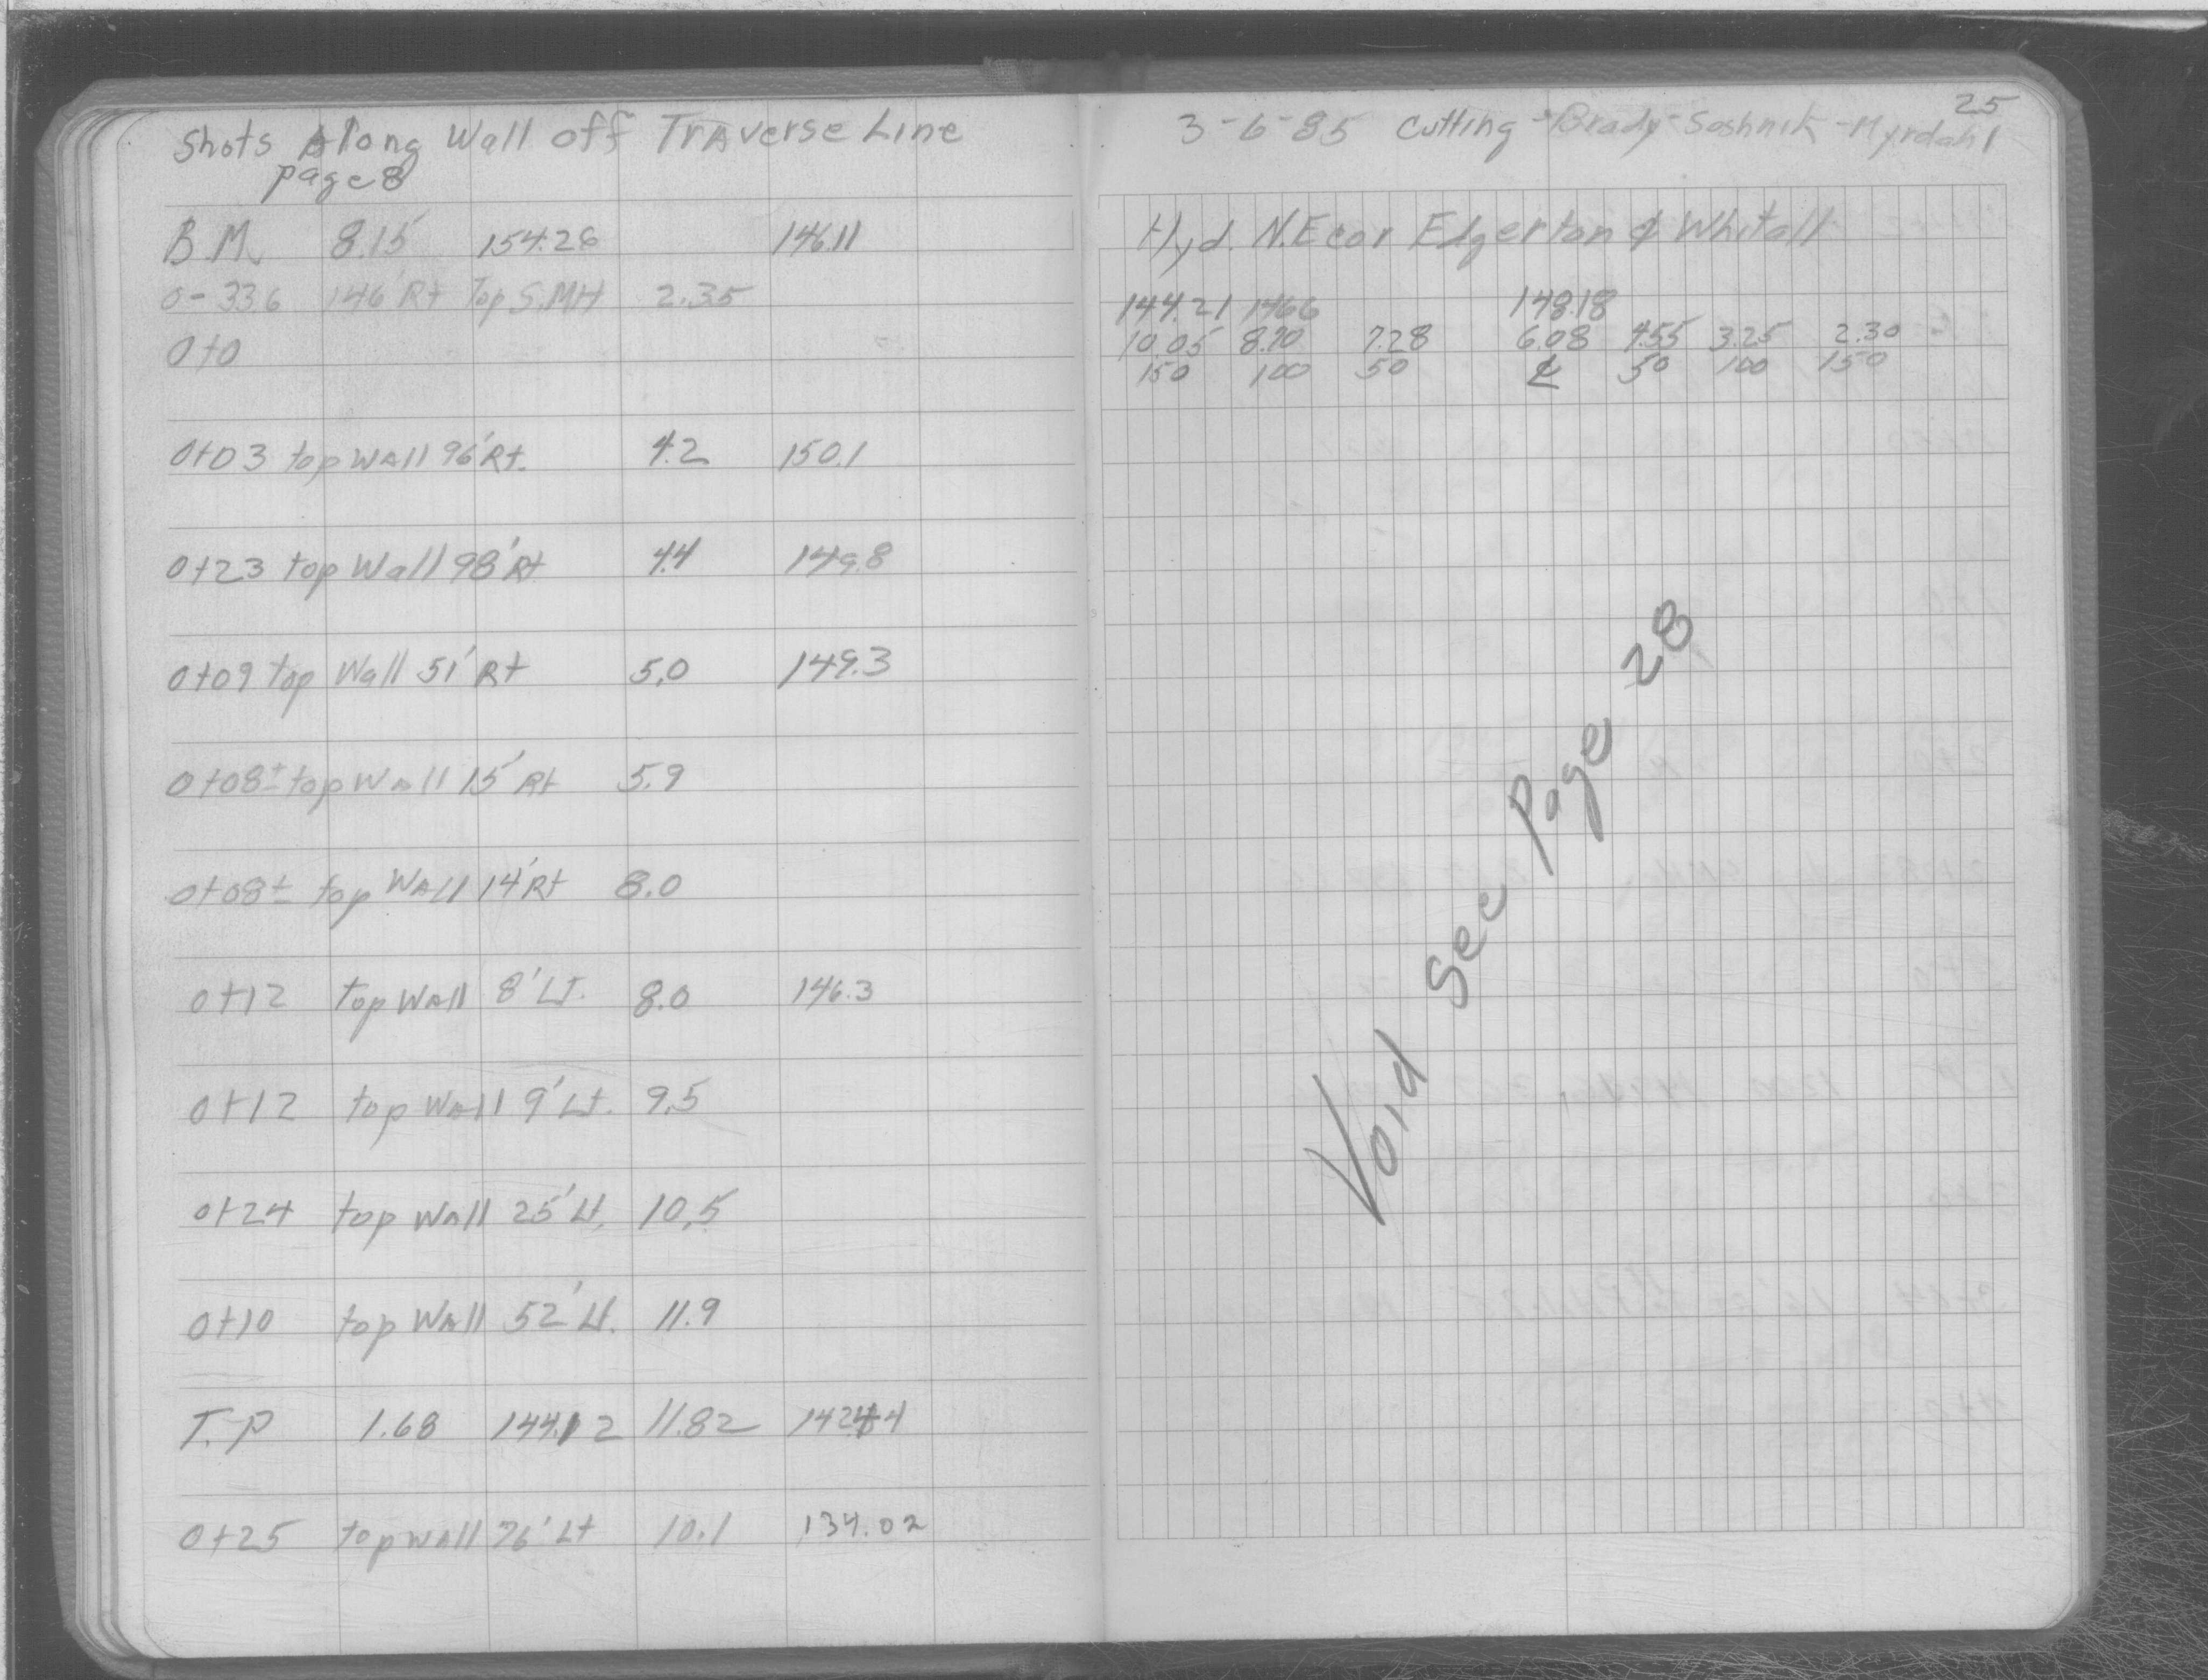 Shots Along Wall off Traverse Line
page 8
B.M. 8.15 154.26 146.11
0-33.6 146' Rt Top S.MH 2.35
0+0
0+03 top wall 96' Rt. 4.2 150.1
0+23 top Wall 98' Rt 4.4 149.8
0+09 top Wall 51' Rt 5.0 149.3
0+08± top Wall 15' Rt 5.9
0+08± top Wall 14' Rt 8.0
0+12 top Wall 8' Lt. 8.0 146.3
0+12 top Wall 9' Lt. 9.5
0+24 top Wall 25' Lt. 10.5
0+10 top Wall 52' Lt. 11.9
T.P 1.68 144.12 11.82 142.44
0+25 top wall 76' Lt 10.1 134.02
25
3-6-85 Cutting - Brady - Soshnik - Myrdahl
Hyd. N.E cor Edgerton & Whitall
144.21 146.6 148.18
10.05 8.70 7.28 6.08 4.55 3.25 2.30
150 100 50 ℄ 50 100 150
Void See Page 28